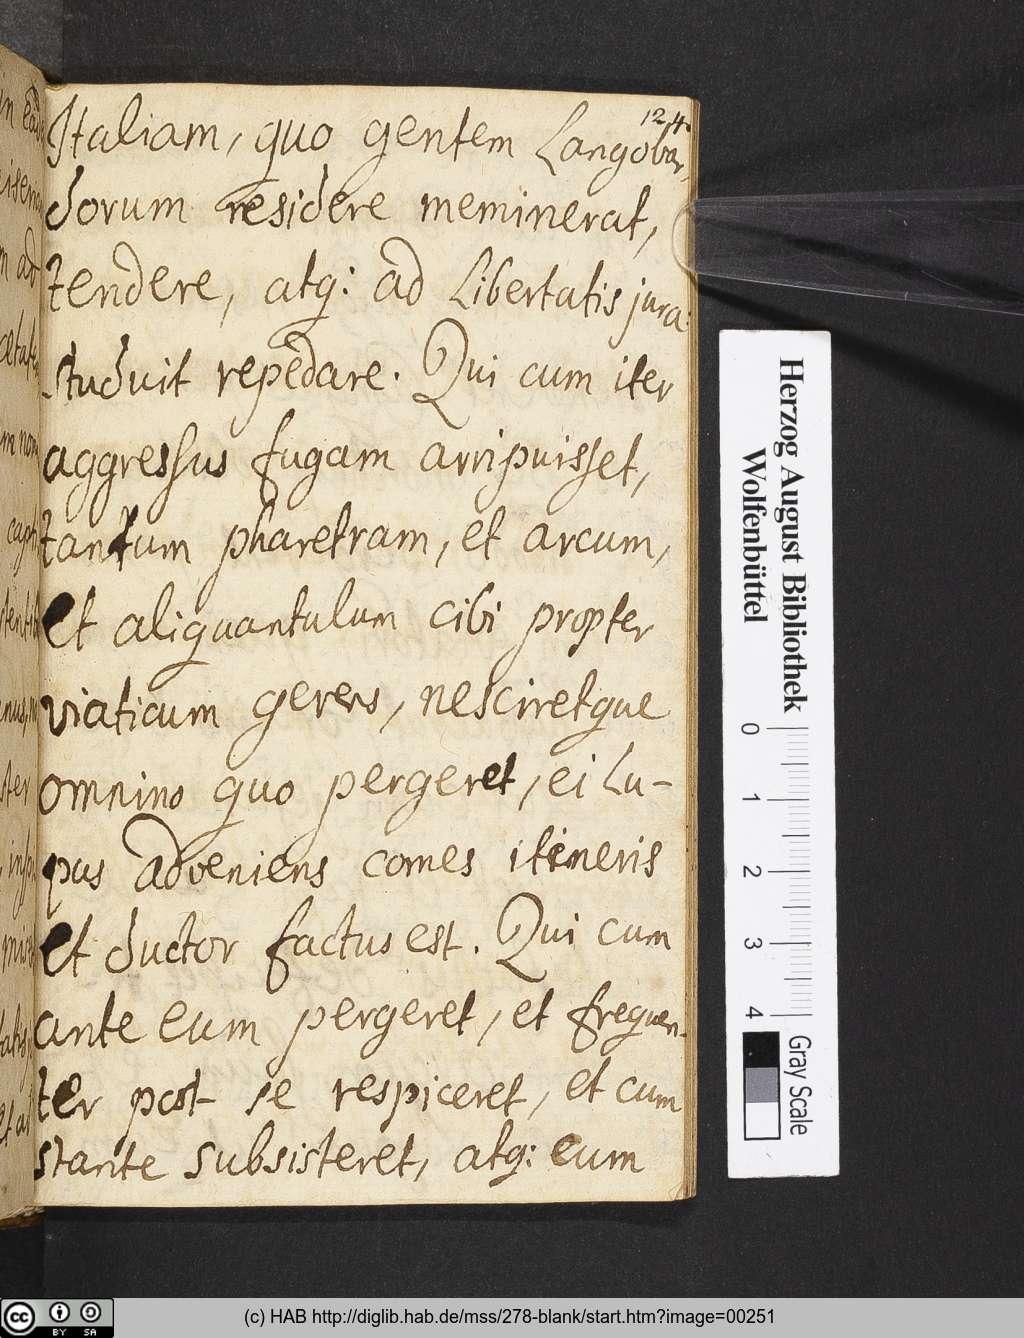 124.
Italiam, quo gentem Langobar,
dorum residere meminerat,
tendere, atq: ad Libertatis jura
studuit repedare. Qui cum iter
aggressus fugam arripuisset,
tantum pharetram, et arcum,
et aliquantulum cibi propter
viaticum gerens, nesciretque
omnino quo pergeret, ei Lu-
pus adveniens comes itineris
et ductor factus est. Qui cum
ante eum pergeret, et frequen-
ter post se respiceret, et cum
stante subsisteret, atq: eum
Herzog August Bibliothek
Wolfenbüttel
0 1 2 3 4
Gray Scale
cc BY SA
(c) HAB http://diglib.hab.de/mss/278-blank/start.htm?image=00251